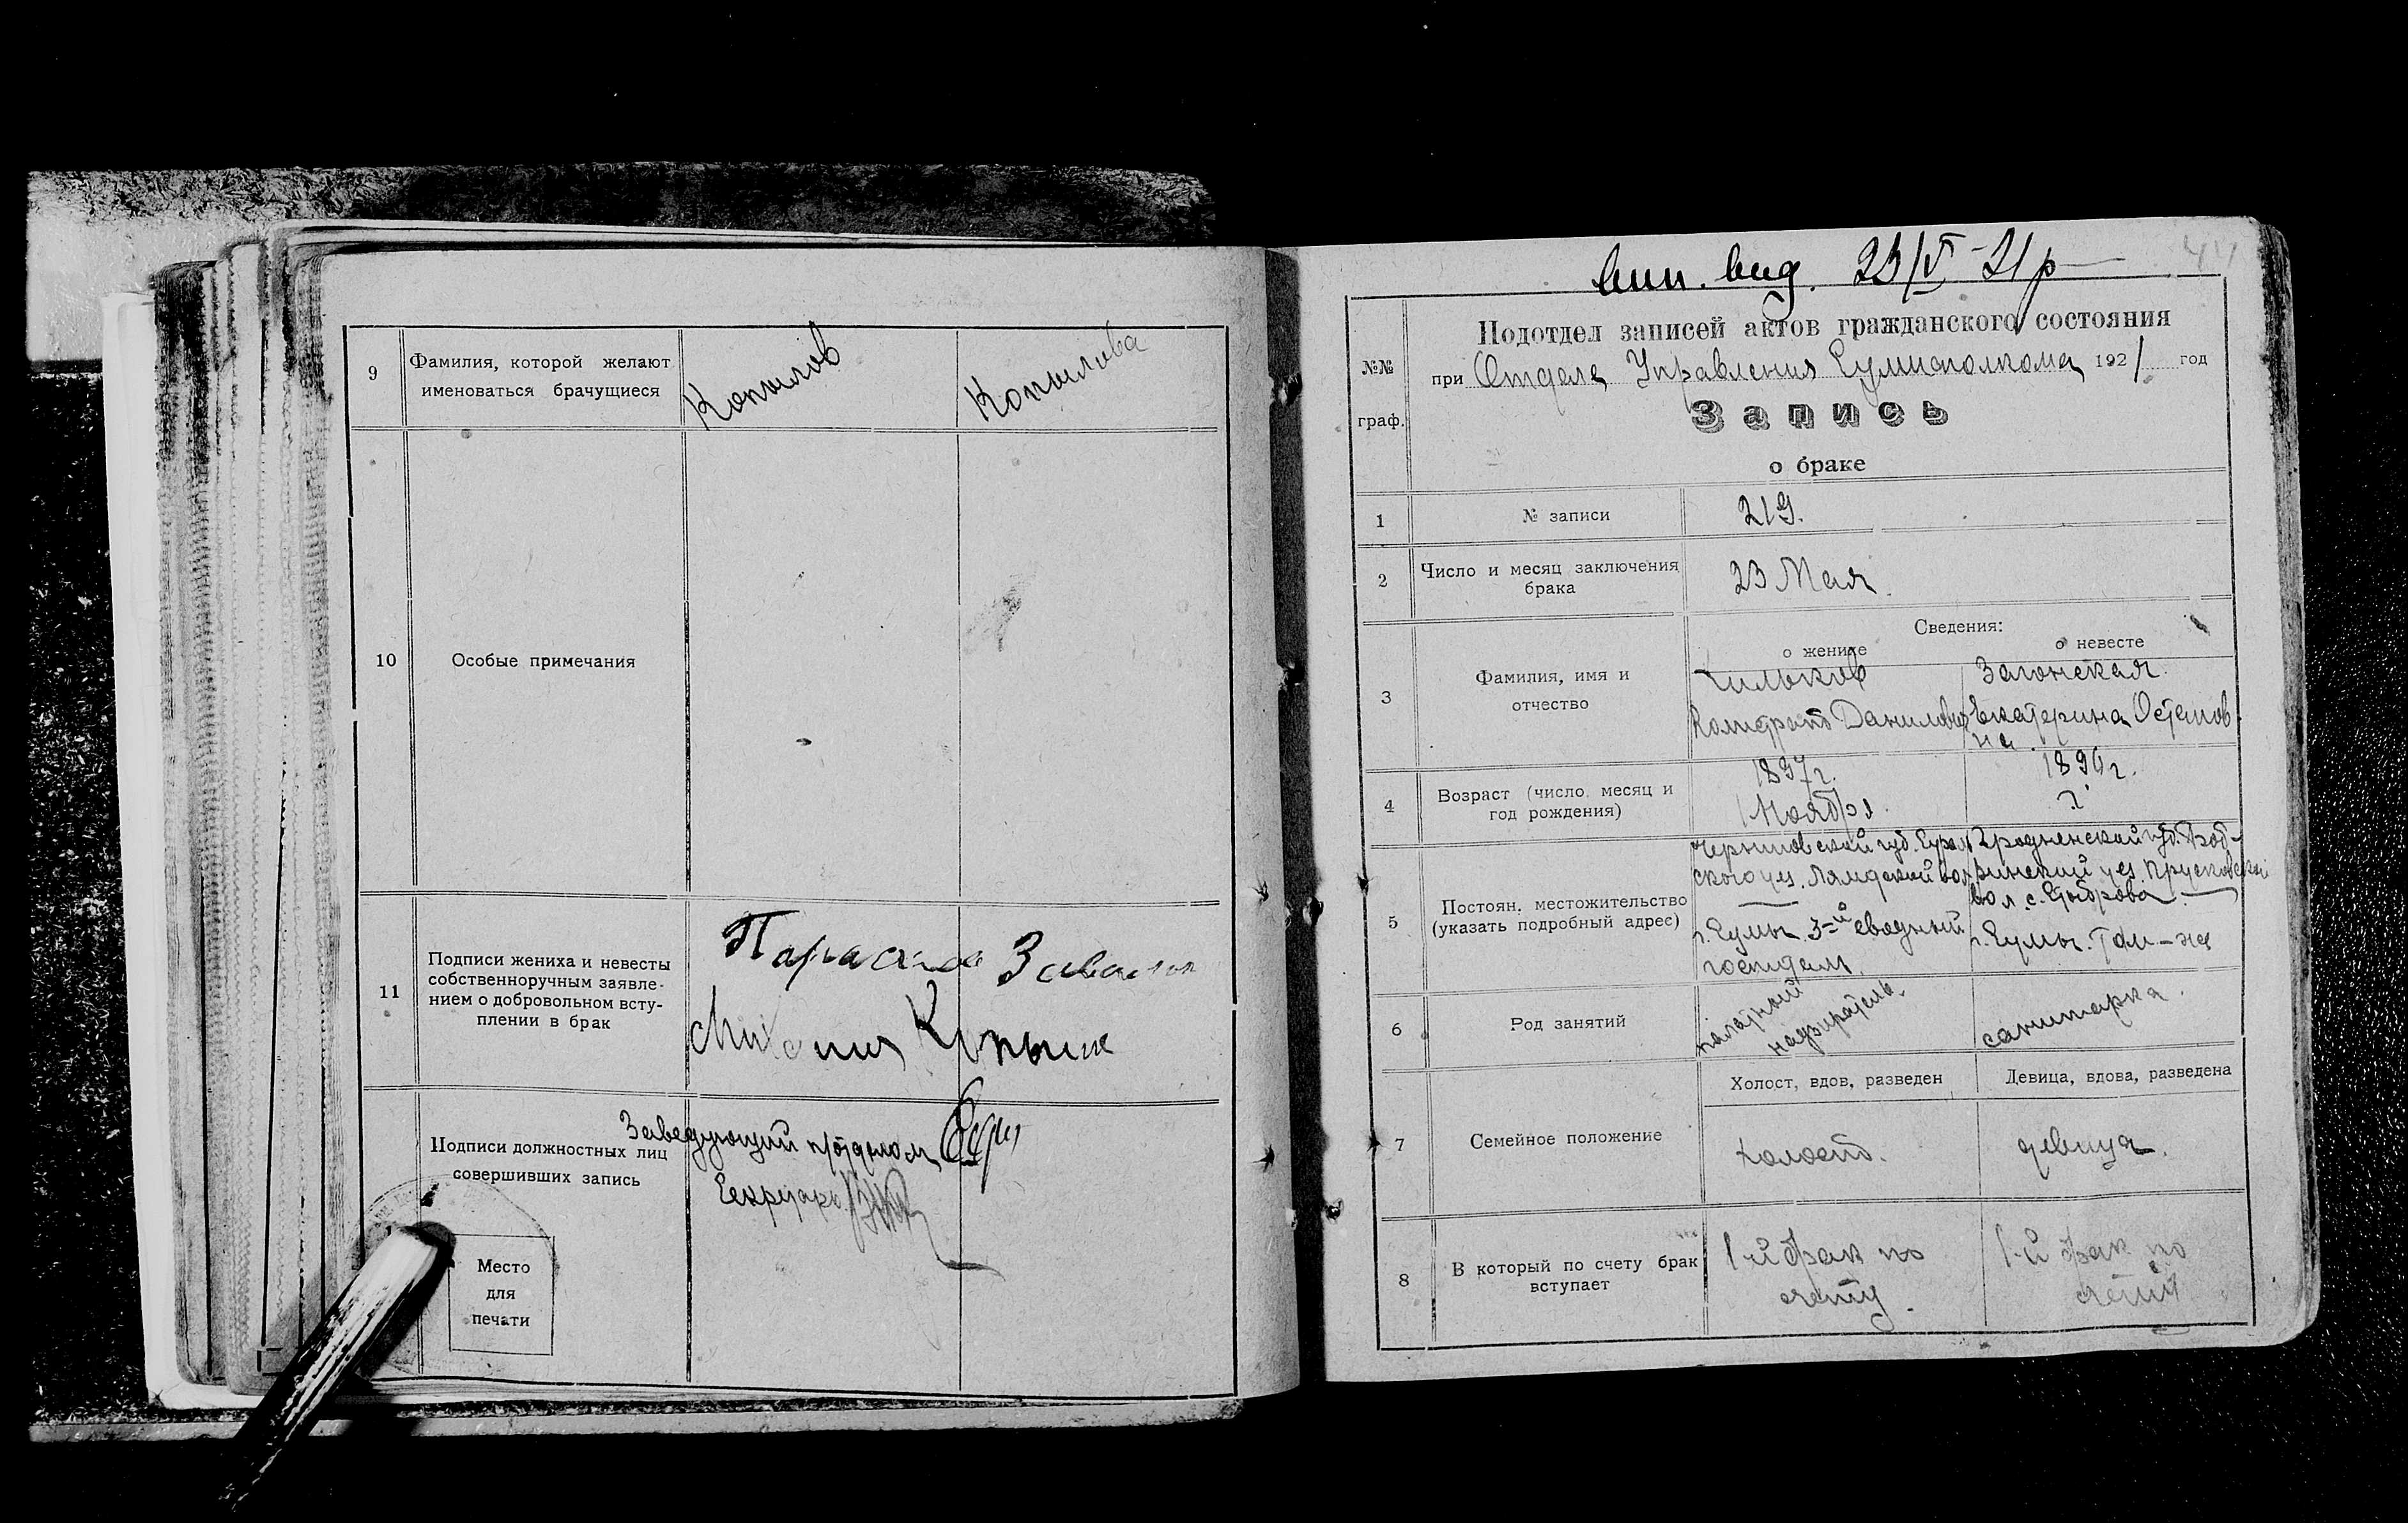 9
Фамилия, которой желают
именоваться брачущиеся
Копылов
Копылова
10
Особые примечания
11
Подписи жениха и невесты
собственноручным заявле-
нием о добровольном всту-
плении в брак
Параска
Подписи должностных лиц
совершивших запись
Заведующий
Секретарь
Место
для
печати
44
вид. 23/V 21р
№№
граф.
Подотдел записей актов гражданского состояния
при Отделе Управления Сумисполкома 1921 год
Запись
о браке
1
№ записи
219.
2
Число и месяц заключения
брака
23 Мая.
3
Фамилия, имя и
отчество
Сведения:
о женихе
о невесте
Загонская.
Кондратъ Данилович
Екатерина Остапов
на
4
Возраст (число, месяц и
год рождения)
1897 г.
1 Ноября.
1896 г.
?
5
Постоян. местожительство
(указать подробный адрес)
Черниговской губ.
ского уез. волс.
г. Сумы. 3-й сводный
госпиталь.
Гродненской губ. Коб-
ринский уез.
вол. с.
г. Сумы. Там-же
6
Род занятий
палатный
надзиратель.
санитарка.
7
Семейное положение
Холост, вдов, разведен
Девица, вдова, разведена
холостъ.
девица.
8
В который по счету брак
вступает
1-й брак по
счету.
1-й брак по
счету